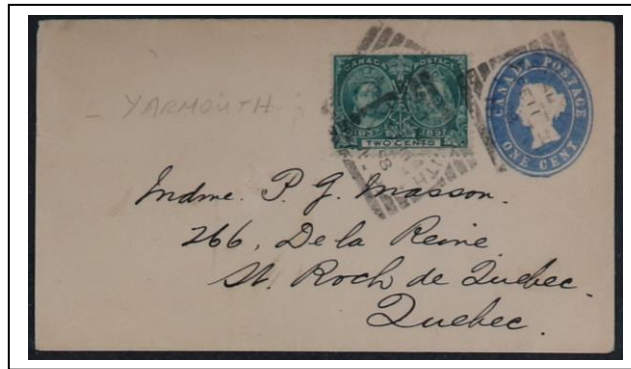 CANADA POSTAGE
1837 1897
TWO CENTS
CANADA POSTAGE
ONE CENT
- YARMOUTH -
Mdme. P. G. Masson.
266, De la Reine
St. Roch de Quebec.
Quebec.